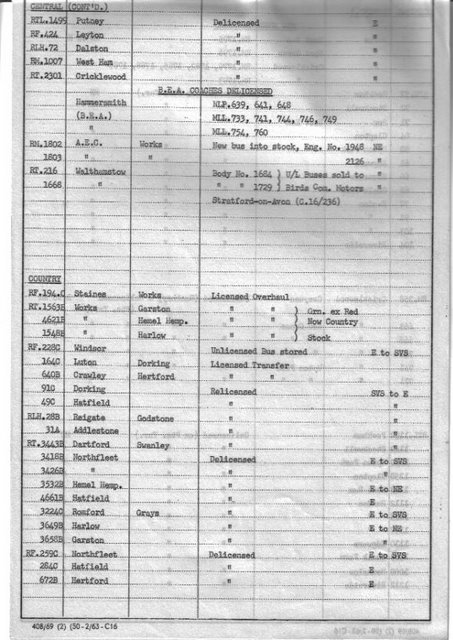 CENTRAL (CONT'D.)
RTL.1495 Putney Delicensed E
RF.424 Leyton " "
RLH.72 Dalston " "
RM.1007 West Ham " "
RT.2301 Cricklewood " "
B.E.A. COACHES DELICENSED
Hammersmith NLP.639, 641, 648
(B.E.A.) MLL.733, 741, 744, 746, 749
" MLL.754, 760
RM.1802 A.E.C. Works New bus into stock, Eng. No. 1948 NE
1803 " " 2126 "
RT.216 Walthamstow Body No. 1684 ) U/L Buses sold to "
1668 " " " 1729 ) Birds Com. Motors "
Stratford-on-Avon (C.16/236)
COUNTRY
RF.194.C Staines Works Licensed Overhaul
RT.1563B Works Garston " " ) Grn. ex Red
4621B " Hemel Hemp. " " ) Now Country
1548B " Harlow " " ) Stock
RF.228C Windsor Unlicensed Bus stored E to SVS
164C Luton Dorking Licensed Transfer
640B Crawley Hertford " "
91C Dorking Relicensed SVS to E
49C Hatfield " "
RLH.28B Reigate Godstone " "
31A Addlestone " "
RT.3443B Dartford Swanley " "
3418B Northfleet Delicensed E to SVS
3426B " " "
3532B Hemel Hemp. " E to NE
4661B Hatfield " E
3224C Romford Grays " E to SVS
3649B Harlow " E to NE
3658B Garston " "
RF.259C Northfleet Delicensed E to SVS
284C Hatfield " E
672B Hertford " E
408/69 (2) (50-2/63-C16